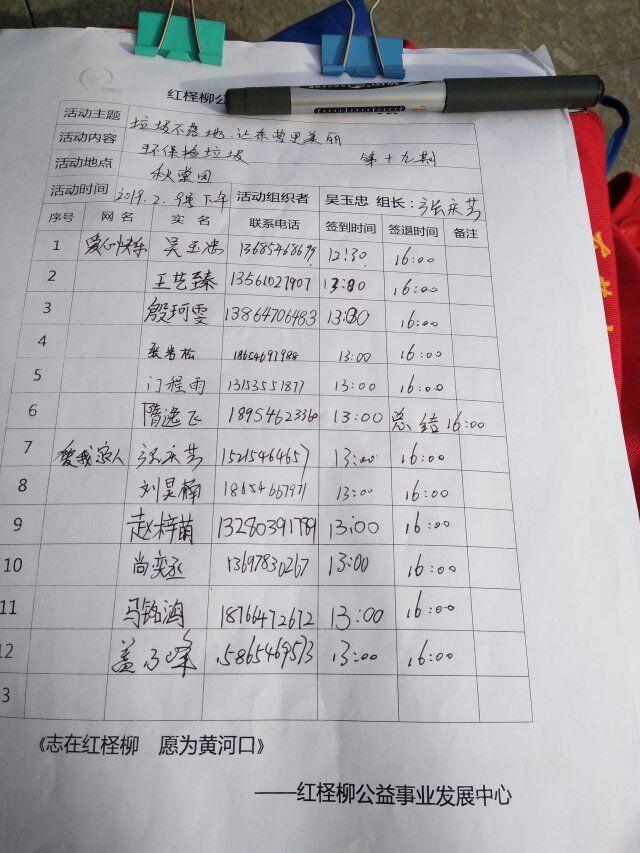 红柽柳公
活动主题 垃圾不落地 让东营更美丽
活动内容 环保捡垃圾 第十九期
活动地点 秋棠园
活动时间 2019.2.9号下午 活动组织者 吴玉忠 组长:张庆芸
序号 网名 实名 联系电话 签到时间 签退时间 备注
1 爱心快乐 吴玉忠 12:30 16:00
2 王艺臻 13561027907 13:00 16:00
3 殷珂雯 13864706483 13:00 16:00
4 松 18654697988 13:00 16:00
5 门程雨 13153551877 13:00 16:00
6 隋逸飞 1895462334 13:00 总结 16:00
7 爱我家人 张庆芸 15215464657 13:00 16:00
8 刘昊楠 13:00 16:00
9 赵梓萌 13280391789 13:00 16:00
10 尚奕丞 13697830267 13:00 16:00
11 马铭涵 18766472672 13:00 16:00
12 盖乃峰 15865469573 13:00 16:00
3
《志在红柽柳 愿为黄河口》
——红柽柳公益事业发展中心